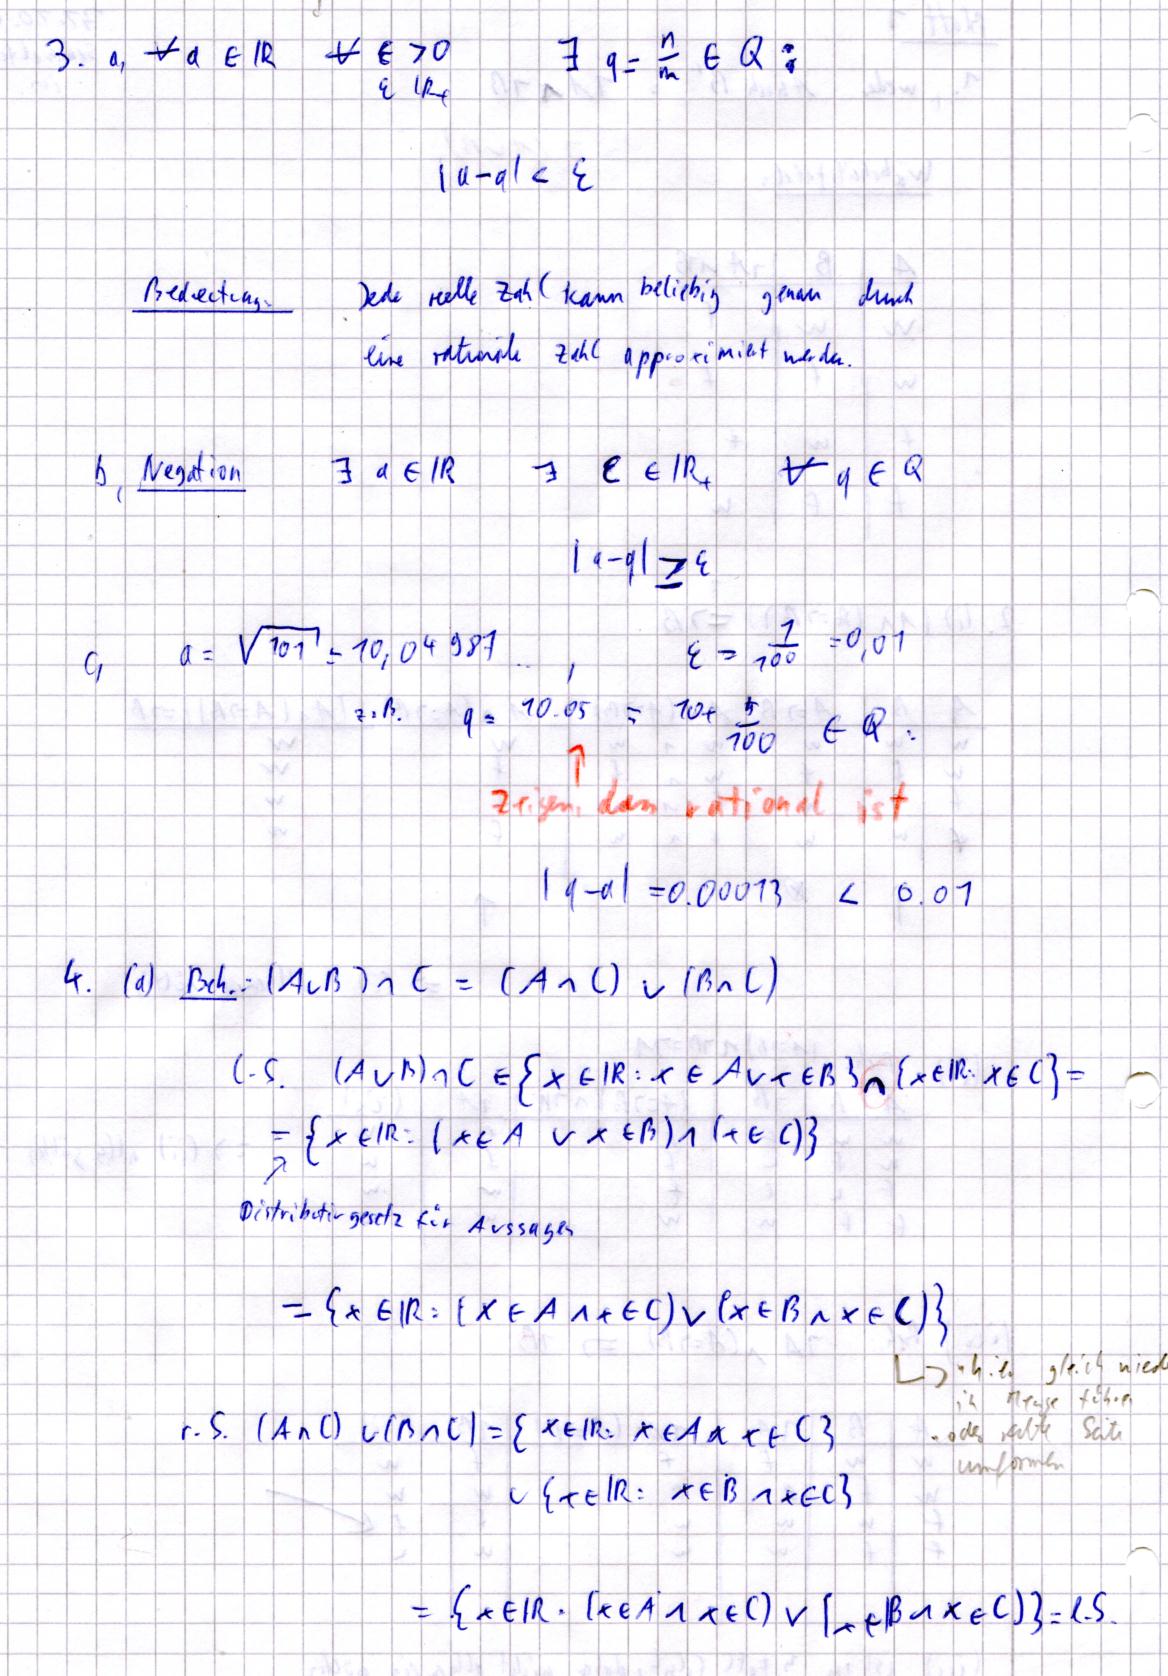 3. a, ∀ a ∈ ℝ ∀ ε > 0 ∃ q = n/m ∈ Q :
ε ℝ₊
|a-q| < ε
Bedeutung: Jede reelle Zahl kann beliebig genau durch
eine rationale Zahl approximiert werden.
b, Negation ∃ a ∈ ℝ ∃ ε ∈ ℝ₊ ∀ q ∈ Q
|a-q| ≥ ε
c, a = √101 = 10,04987..., ε = 1/100 = 0,01
z.B. q = 10.05 = 10 + 5/100 ∈ Q :
↑
Zeigen, dass rational ist
|q-a| = 0.00013 < 0.01
4. (a) Beh.: (A∪B)∩C = (A∩C) ∪ (B∩C)
l.S. (A∪B)∩C ∈ {x∈ℝ: x∈A ∨ x∈B} ∩ {x∈ℝ: x∈C} =
= {x∈ℝ: (x∈A ∨ x∈B) ∧ (x∈C)}
Distributivgesetz für Aussagen
= {x∈ℝ: (x∈A ∧ x∈C) ∨ (x∈B ∧ x∈C)}
↳ gleich wieder
in Menge führen
oder rechte Seite
umformen
r.S. (A∩C) ∪ (B∩C) = {x∈ℝ: x∈A ∧ x∈C}
∪ {x∈ℝ: x∈B ∧ x∈C}
= {x∈ℝ: (x∈A ∧ x∈C) ∨ (x∈B ∧ x∈C)} = l.S.